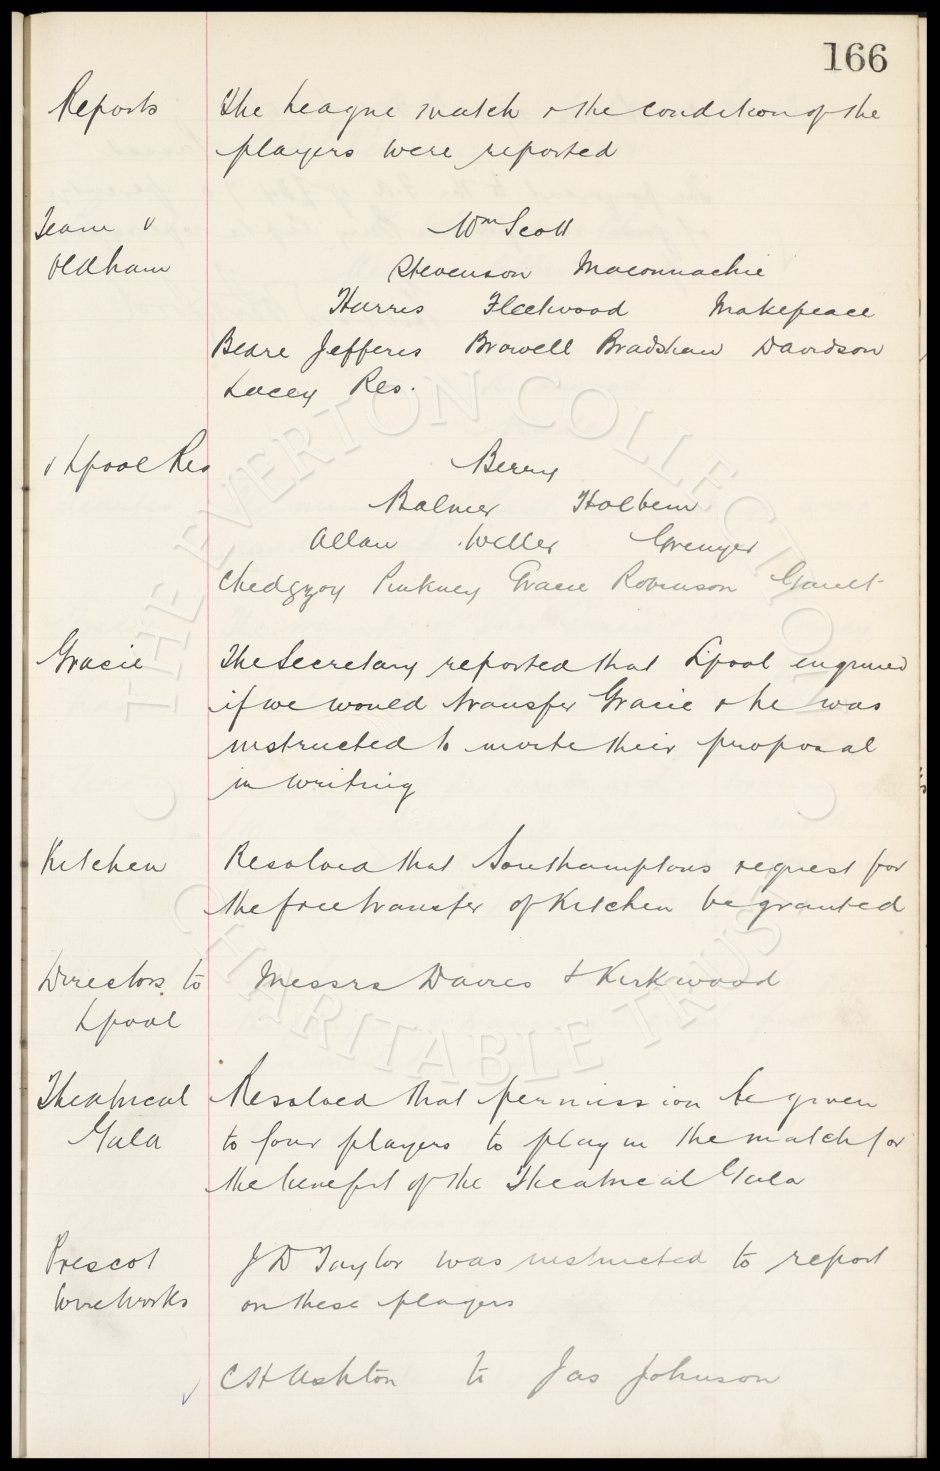 166
Reports The League match & the condition of the
players were reported
Team v Wm Scott
Oldham Stevenson Maconnachie
Harris Fleetwood Makepeace
Beare Jefferis Browell Bradshaw Davidson
Lacey Res.
v Lpool Res Berry
Balmer Holbem
Allan Weller Grenyer
Chedgzoy Pinkney Gracie Robinson Gault
Gracie The Secretary reported that Lpool enquired
if we would transfer Gracie & he was
instructed to invite their proposal
in writing
Kitchen Resolved that Southamptons request for
the free transfer of Kitchen be granted
Directors to Messrs Davies & Kirkwood
Lpool
Theatrical Resolved that permission be given
Gala to four players to play in the match for
the benefit of the Theatrical Gala
Prescot J D Taylor was instructed to report
Wireworks on these players
C H Ashton to Jas Johnson
THE EVERTON COLLECTION
CHARITABLE TRUST